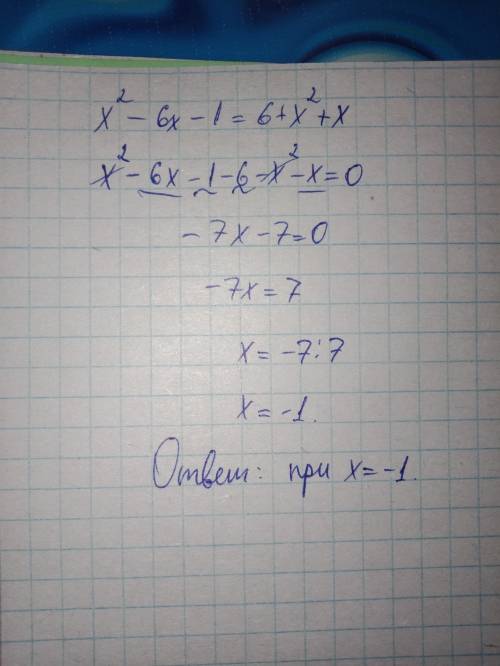 x² - 6x - 1 = 6 + x² + x
x² - 6x - 1 - 6 - x² - x = 0
- 7x - 7 = 0
- 7x = 7
x = -7 : 7
x = -1.
Ответ: при x = -1.